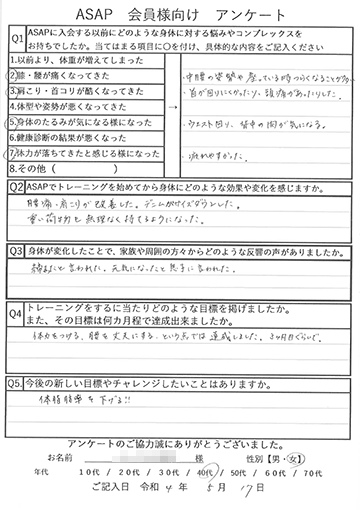 ASAP 会員様向け アンケート
Q1 ASAPに入会する以前にどのような身体に対する悩みやコンプレックスを
お持ちでしたか。当てはまる項目に〇を付け、具体的な内容をご記入ください
1.以前より、体重が増えてしまった
2.膝・腰が痛くなってきた
3.肩こり・首コリが酷くなってきた
4.体型や姿勢が悪くなってきた
5.身体のたるみが気になる様になった
6.健康診断の結果が悪くなった
7.体力が落ちてきたと感じる様になった
8.その他( )
→
・中腰の姿勢や座っている時つらくなることが多い
・首が回りにくかったり、頭痛があったりした。
・ウエスト回り、背中の肉が気になる。
・疲れやすかった。
Q2 ASAPでトレーニングを始めてから身体にどのような効果や変化を感じますか。
腰痛・肩こりが改善した。デニムがサイズダウンした。
重い荷物を無理なく持てるようになった。
Q3 身体が変化したことで、家族や周囲の方々からどのような反響の声がありましたか。
締まったと言われた。元気になったと息子に言われた。
Q4 トレーニングをするに当たりどのような目標を掲げましたか。
また、その目標は何カ月程で達成出来ましたか。
体力をつける、腰を丈夫にする、という点では達成しました。3ヶ月ぐらいで。
Q5. 今後の新しい目標やチャレンジしたいことはありますか。
体脂肪率を下げる!!
アンケートのご協力誠にありがとうございました。
お名前 様 性別【男・女】
年代 10代 / 20代 / 30代 / 40代 / 50代 / 60代 / 70代
ご記入日 令和 4 年 5 月 17 日